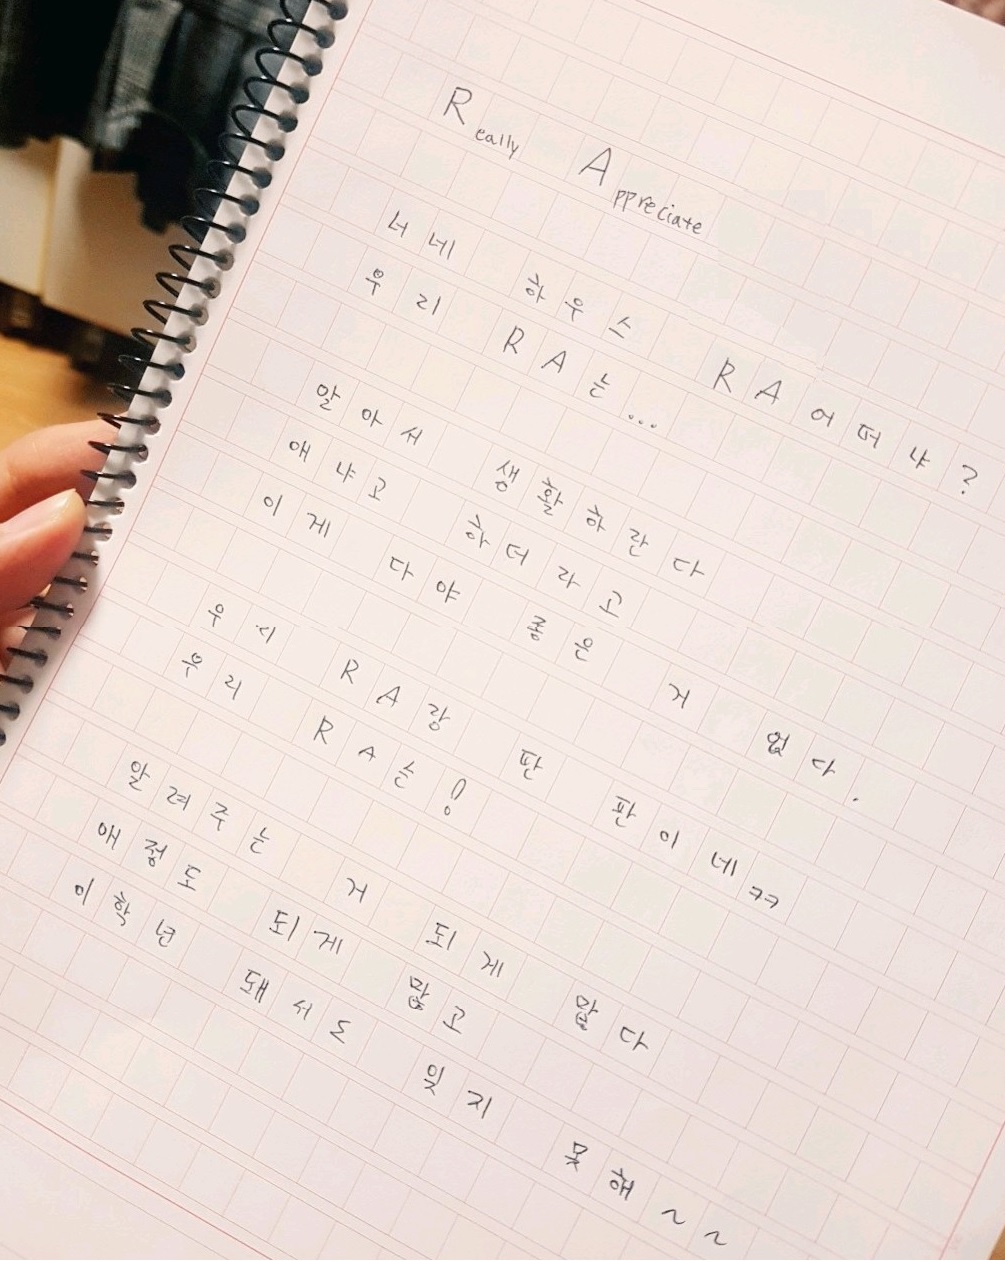 Really Appreciate
너네 하우스 RA어떠냐?
우리 RA는...
알아서 생활하란다
애냐고 하더라고
이게 다야 좋은 거 없다.
우리 RA랑 딴 판이네ㅋㅋ
우리 RA는!
알려주는 거 되게 많다
애정도 되게 많고
이학년 돼서도 잊지 못해~~